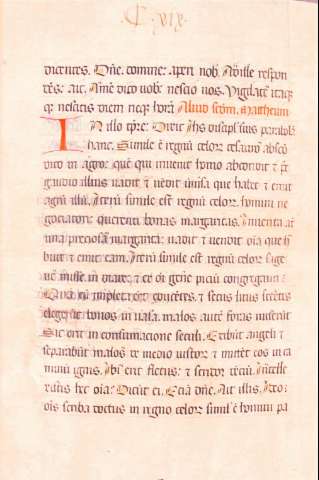 C. xix.
dicentes. Dñe. domine: aperi nob. At ille respon
dēs: ait. Amē dico vobis nescio uos. Vigilate itaq;
q; nescitis diem neq; horā. Aliud scdm. Mattheum
IN illo tpre: Dixit ihs discipl'suis parabolā
hanc. Simile ē regnū celor thesauro absco
dito in agro: quē qui inuenit homo abscondit & p̄
gaudio illius uadit & uendit uniūsa que habet & emit
agrū illū. Iterū simile est regnū celor. homini ne
gociatori: querenti bonas margaritas. Inuenta at
una preciosa margarita: uadit & uendit oīa que h
buit & emit eam. Iterū simile est regnū celor sage
ne misse in mare: & ex oī genē pisciū congreganti.
Quā cū impleta eet educētes. & secus litus sedētes
elegerūt bonos in uasa. malos autē foras miserūt
Sic erit in consumacione seculi. Exibūt angeli &
separabūt malos de medio iustor & mittēt eos in ca
minū ignis. Ibi erit fletus: & stridor dētiū. Intelle
xistis hec oīa: Dicūt ei. Eciā dñe. Ait illis. Ideo:
oīs scriba doctus in regno celor simil'ē homini pa